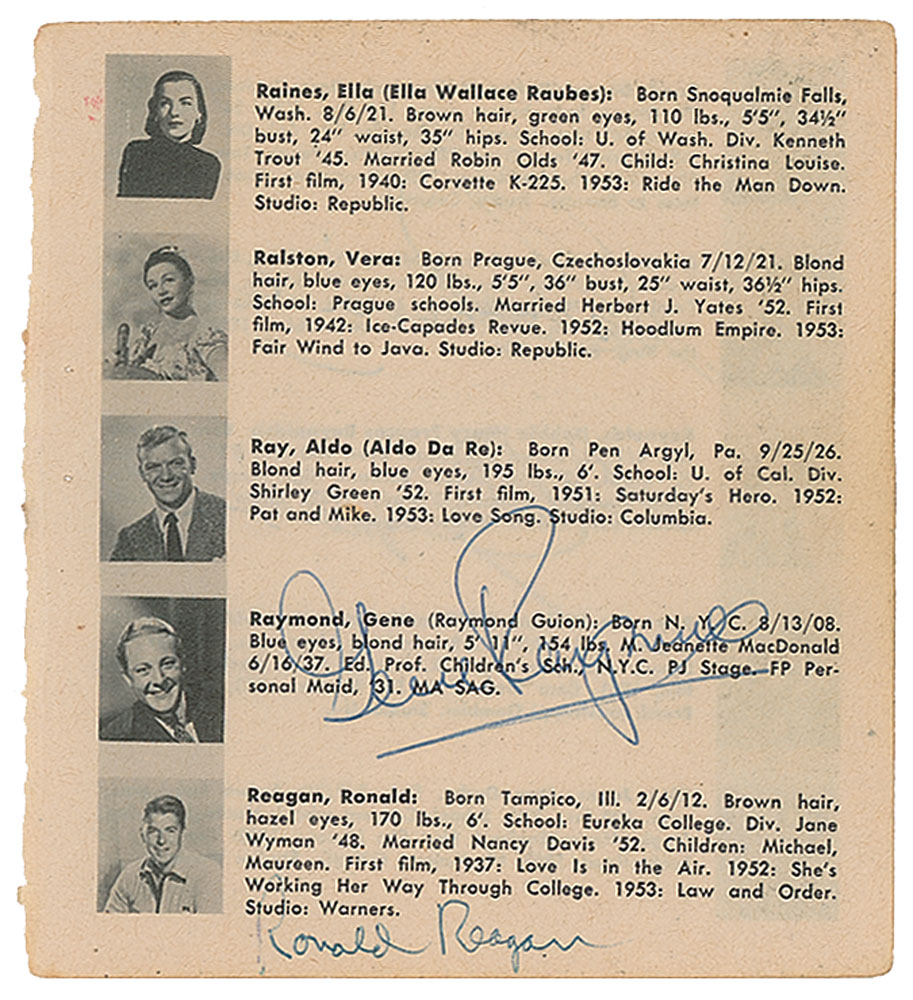 Raines, Ella (Ella Wallace Raubes): Born Snoqualmie Falls,
Wash. 8/6/21. Brown hair, green eyes, 110 lbs., 5'5", 34½"
bust, 24" waist, 35" hips. School: U. of Wash. Div. Kenneth
Trout '45. Married Robin Olds '47. Child: Christina Louise.
First film, 1940: Corvette K-225. 1953: Ride the Man Down.
Studio: Republic.
Ralston, Vera: Born Prague, Czechoslovakia 7/12/21. Blond
hair, blue eyes, 120 lbs., 5'5", 36" bust, 25" waist, 36½" hips.
School: Prague schools. Married Herbert J. Yates '52. First
film, 1942: Ice-Capades Revue. 1952: Hoodlum Empire. 1953:
Fair Wind to Java. Studio: Republic.
Ray, Aldo (Aldo Da Re): Born Pen Argyl, Pa. 9/25/26.
Blond hair, blue eyes, 195 lbs., 6'. School: U. of Cal. Div.
Shirley Green '52. First film, 1951: Saturday's Hero. 1952:
Pat and Mike. 1953: Love Song. Studio: Columbia.
Raymond, Gene (Raymond Guion): Born N. Y. C. 8/13/08.
Blue eyes, blond hair, 5' 11", 154 lbs. M. Jeanette MacDonald
6/16/37. Ed. Prof. Children's Sch., N.Y.C. PJ Stage. FP Per-
sonal Maid, '31. MA SAG.
Gene Raymond
Reagan, Ronald: Born Tampico, Ill. 2/6/12. Brown hair,
hazel eyes, 170 lbs., 6'. School: Eureka College. Div. Jane
Wyman '48. Married Nancy Davis '52. Children: Michael,
Maureen. First film, 1937: Love Is in the Air. 1952: She's
Working Her Way Through College. 1953: Law and Order.
Studio: Warners.
Ronald Reagan